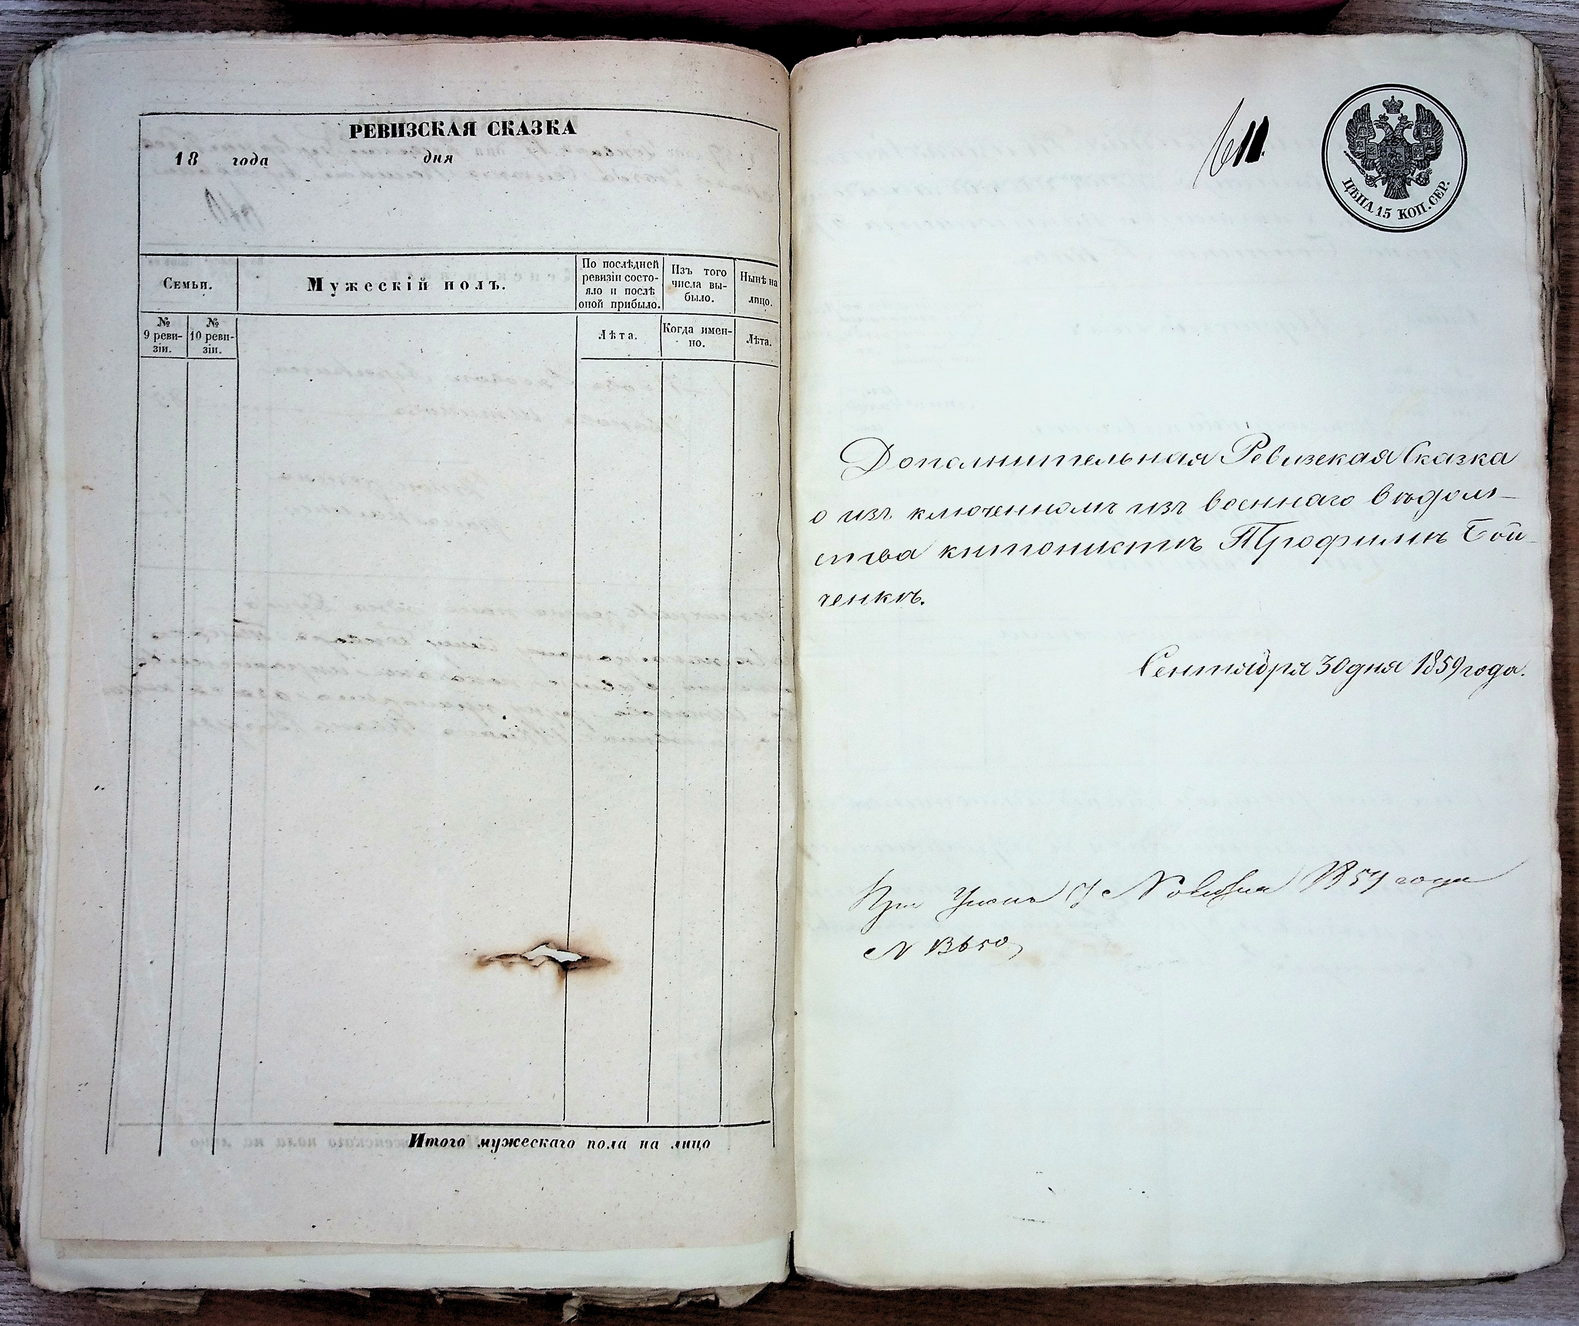 РЕВИЗСКАЯ СКАЗКА
18 года дня
Семьи.
Мужескій полъ.
По послѣдней
ревизіи состо-
яло и послѣ
оной прибыло.
Изъ того
числа вы-
было.
Нынѣ на
лицо.
№
9 реви-
зіи.
№
10 реви-
зіи.
Лѣта.
Когда имен-
но.
Лѣта.
Итого мужескаго пола на лицо
ЦѢНА 15 КОП. СЕР.
Дополнительная Ревизская Сказка
о изъ ключенномъ изъ военнаго вѣдом-
ства кантонистѣ Трофимѣ Бой-
ченкѣ.
Сентября 30 дня 1859 года.
1859 года
N 13650